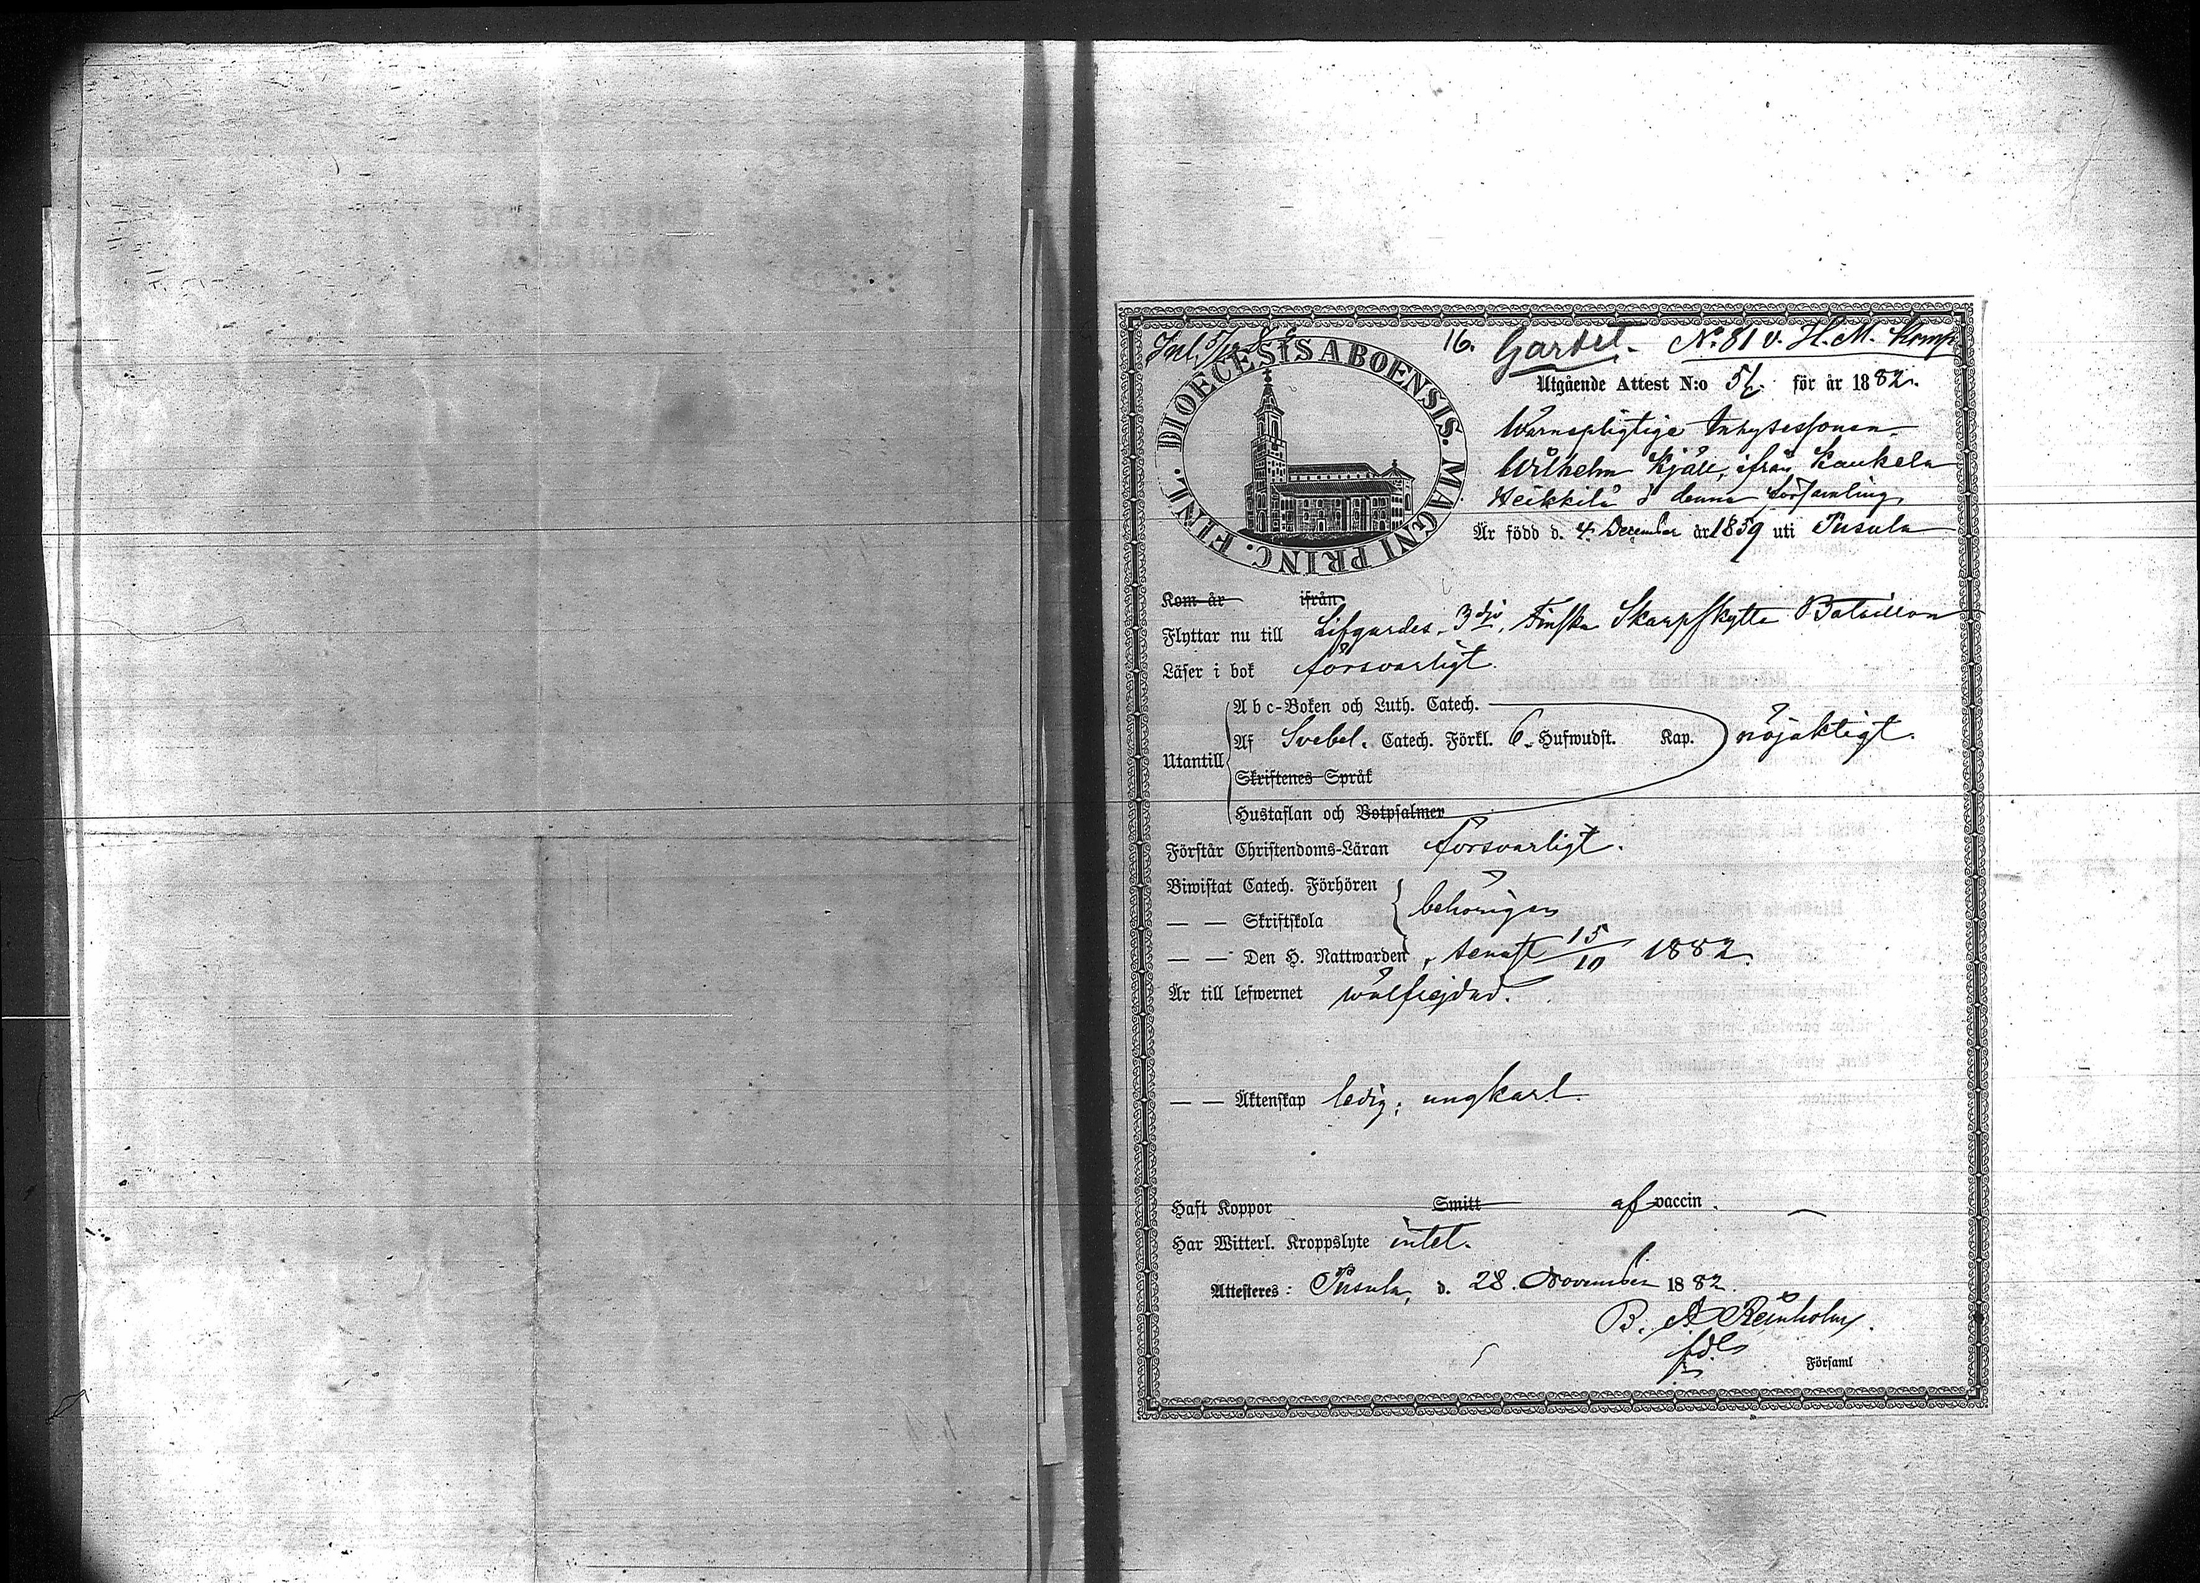 Inl. 5/12 82
16. Gardet. No 81 v. H. M. Komp.
DIOECESIS ABOENSIS. MAGNI PRINC. FINL.
Utgående Attest N:o 54. för år 1882.
Wärnepligtige Inhysessonen
Wilhelm Kjäll, ifrån Kaukela
Heikkilä i denna församling,
Är född d. 4 December år 1859 uti Pusula
Kom år ifrån
Flyttar nu till Lifgardes 3dje Finska Skarpskytte Bataillon
Läser i bok försvarligt.
A b c-Boken och Luth. Catech.
Utantill Af Svebel. Catech. Förkl. 6. Hufwudst. Kap. nöjaktigt.
Skriftenes Språk
Hustaflan och Botpsalmer
Förstår Christendoms-Läran försvarligt.
Biwistat Catech. Förhören
— — Skriftskola behörigen
— — Den H. Nattwarden, senast 15/10 1882.
Är till lefwernet wälfrejdad.
— — Äktenskap ledig; ungkarl
Haft Koppor Smitt af vaccin.
Har Witterl. Kroppslyte intet.
Attesteres: Pusula, d. 28. November 1882.
B. A Reinholm.
Församl